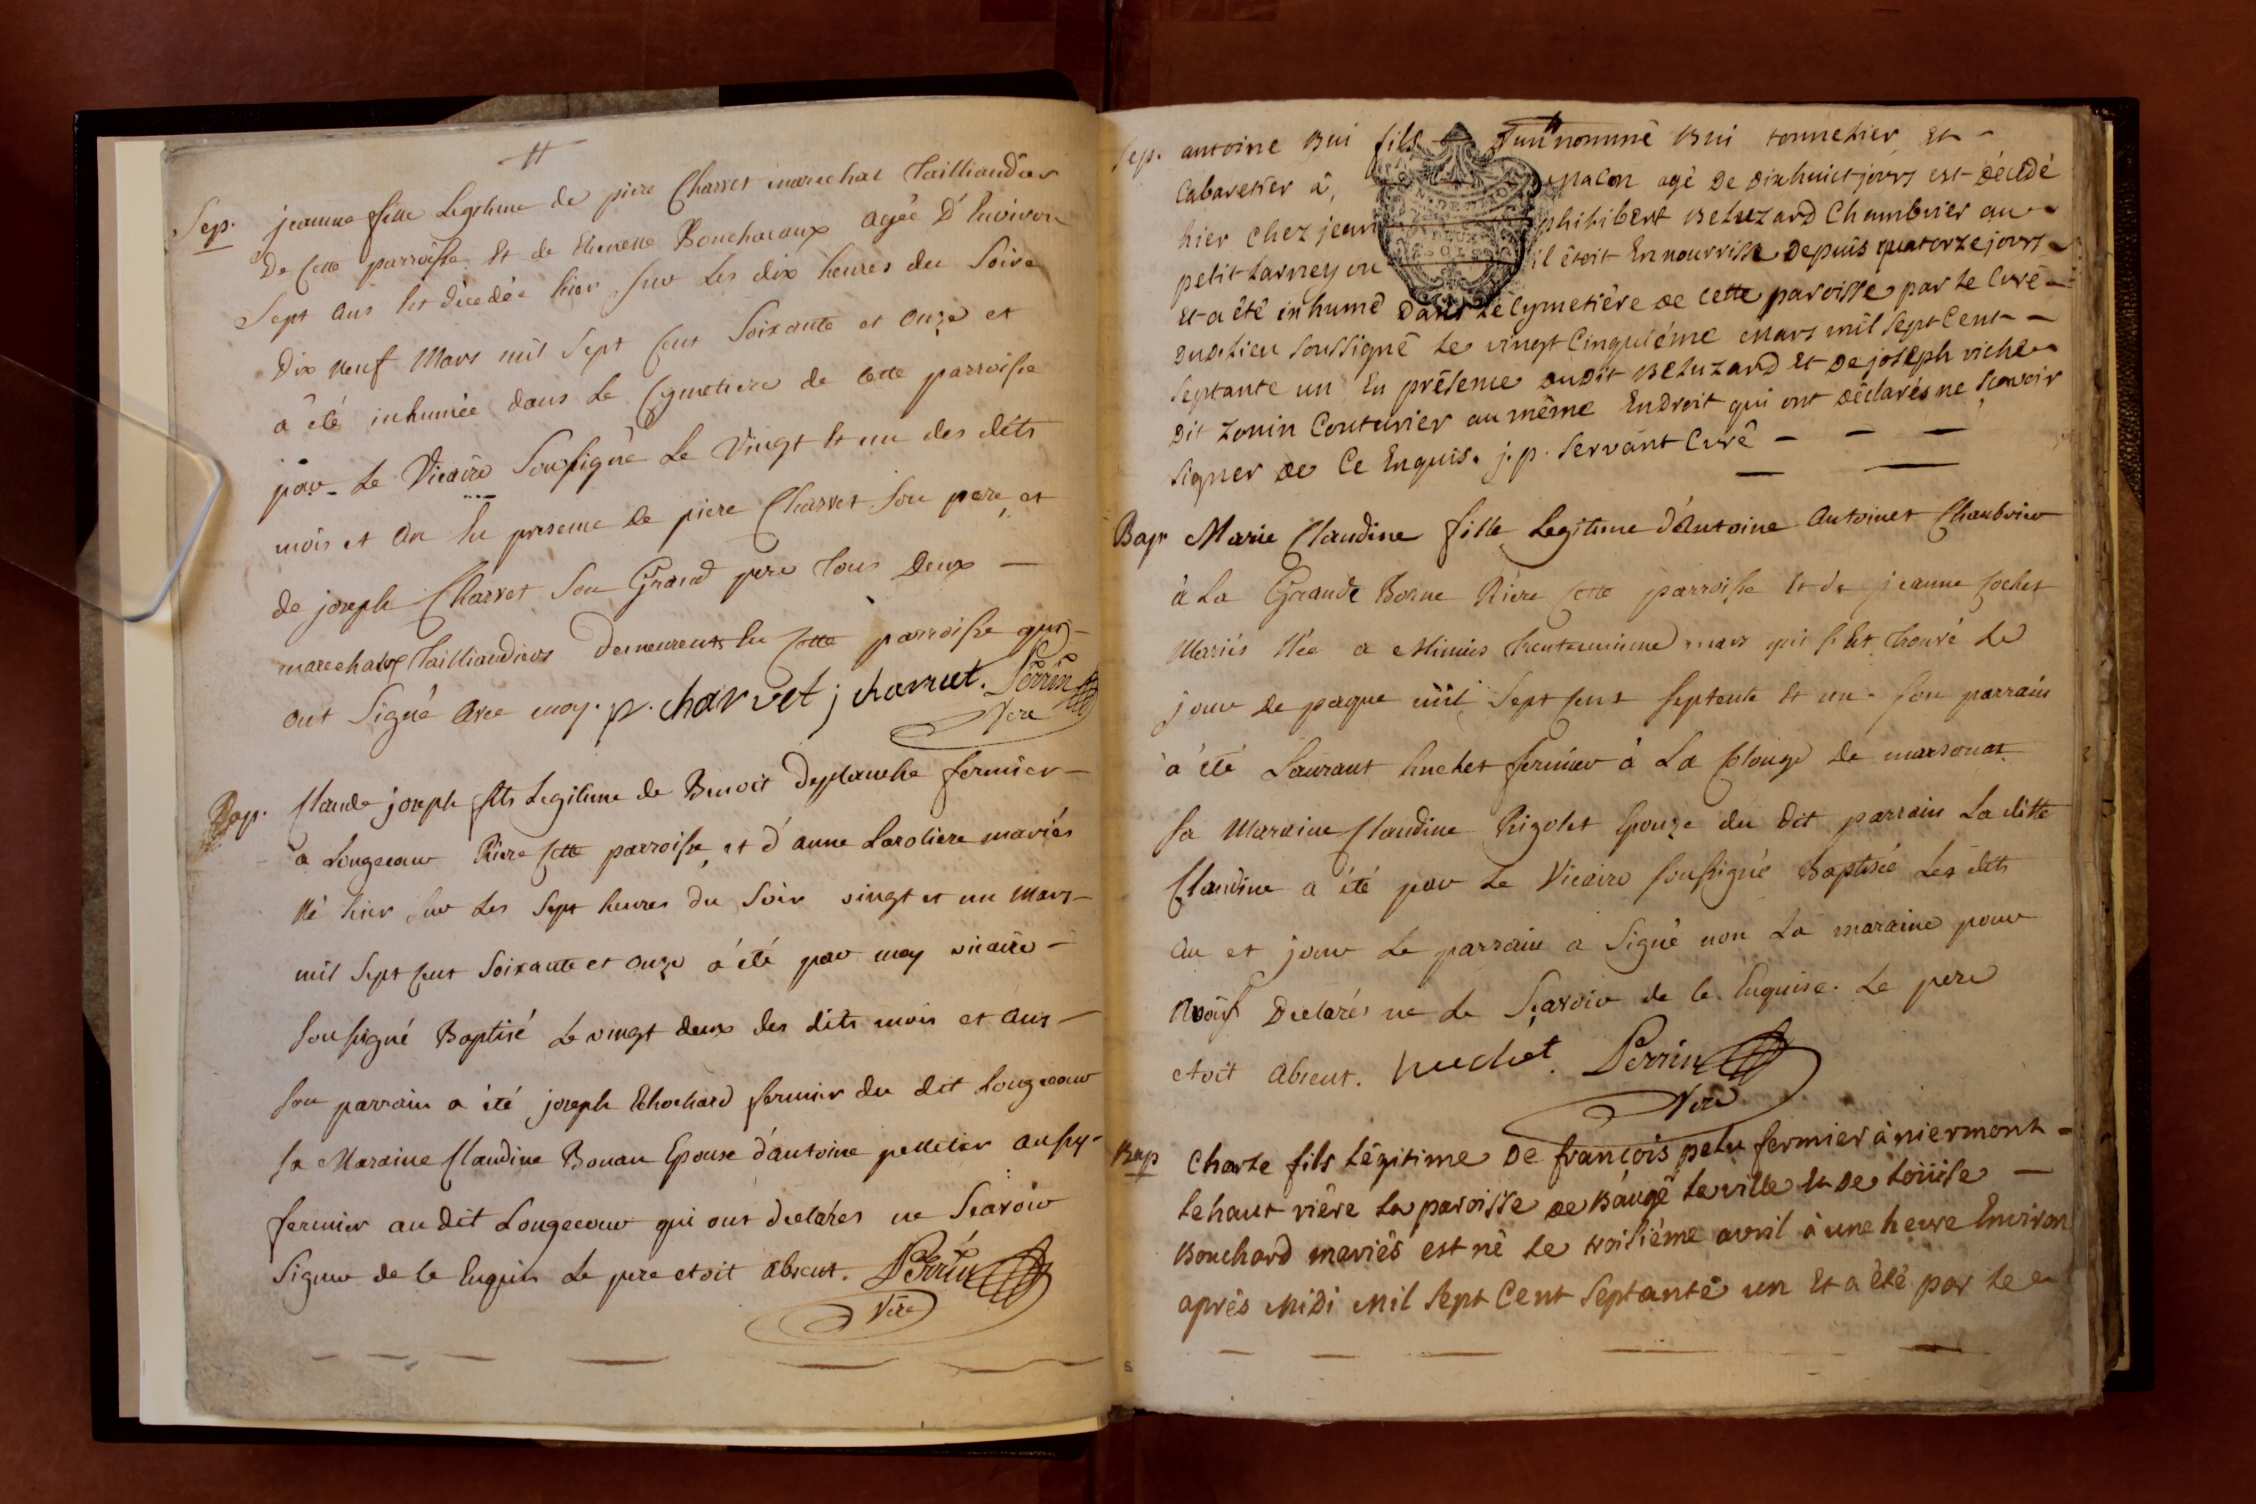 Sep. jeanne fille Legitime de piere Charvet marechal Tailliandier
De cette parroisse Et de Etienette Bouchacaux agée D'Environ
Sept ans Est décedée hier sur Les dix heures du Soire
Dix neuf Mars mil Sept cent Soixante et onze et
a été inhumée dans Le Cymetiere de cette parroisse
par Le Vicaire Soussigné Le Vingt Et un des dits
mois et An En presence de piere Charvet Son pere et
de joseph Charvet Son Grand pere tous Deux —
marechaux Tailliandiers Demeurents En cette parroisse qui
ont Signé Avec moy. p. charvet j charvet. Perrin
Vcre
Bap. Claude joseph fils Legitime de Benoit Desplanche fermier —
a Longecour Riere cette parroisse et d'anne Laroliere mariés
Né hier sur Les Sept heures du Soir vingt et un Mars —
mil Sept cent Soixante et onze a été par moy vicaire —
Soussigné Baptisé Le vingt deux des dits mois et Ans —
Son parrain a été joseph Chochard fermier du dit Longecour
Sa Maraine Claudine Bonan Epouse d'antoine pelletier aussy
fermier au dit Longecour qui ont declarés ne Scavoir
Signer de Ce Enquis Le pere etoit absent. Perrin
Vcre
Sep. antoine Bui fils D'un nommé Bui tonnelier Et —
Cabaretier à, Macon agé De dixhuict jours est Décédé
hier chez jean philibert Beluzard Chambrier au
petit Larney ou il étoit En nourrisse Depuis quatorze jours
Et a été inhumé Dans Le Cymetiére de cette paroisse par Le Curé
Dudit Lieu soussigné Le vingt Cinquiéme Mars mil Sept Cent —
septante un En présence Dudit Beluzard Et De joseph viche
Dit Zonin Couturier au même Endroit qui ont Déclarés ne scavoir
signer de Ce Enquis. j. p. Servant Curé — — —
Bap Marie Claudine fille Legitime d'Antoine Antoinet Chanbrier
à La Grande Borne Riere cette parroisse Et de jeanne Cochet
Mariés Née a Minuis trenteunieme mars qui s'est trouvé Le
jour de paque mil Sept cent septente Et un. Son parrain
a été Laurant huchet fermier à La Colonge de marsonas
Sa Maraine Claudine Rigolet Epouze du dit parrain La ditte
Claudine a été par Le Vicaire soussigné Baptisée Les dits
an et jour Le parrain a Signé non La maraine pour
Avoir Declarés ne Le Scavoir de Ce Enquise. Le pere
etoit absent. huchet. Perrin
Vcre
Bap Charle fils Légitime De françois pelu fermier à niermont —
Le haut riére La paroisse de Baugé La ville Et De Loüise —
Bouchard mariés est né Le troisiéme avril à une heure Environ
aprés Midi Mil Sept Cent Septante un Et a été par Le